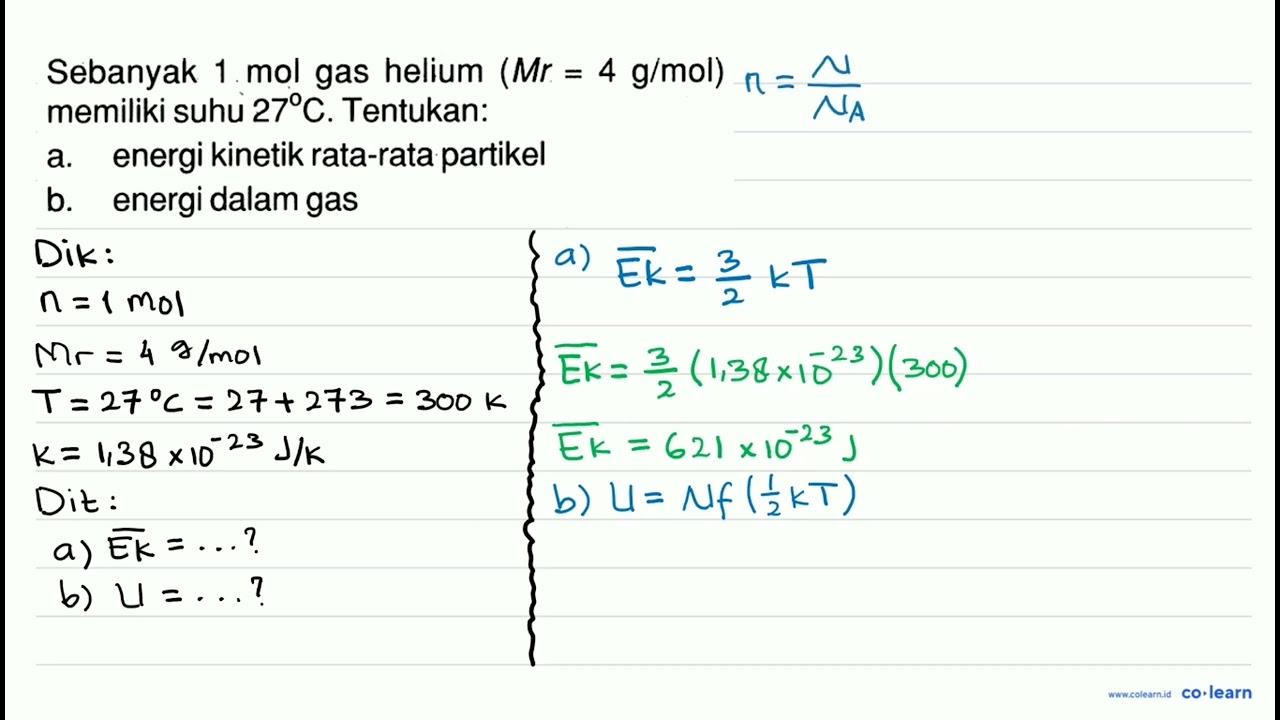 Sebanyak 1 mol gas helium (Mr = 4 g/mol)
memiliki suhu 27°C. Tentukan:
a. energi kinetik rata-rata partikel
b. energi dalam gas
n = N/N_A
Dik:
n = 1 mol
Mr = 4 g/mol
T = 27°C = 27 + 273 = 300 K
k = 1,38 × 10⁻²³ J/K
Dit:
a) E̅k̅ = ...?
b) U = ...?
a) E̅k̅ = 3/2 kT
E̅k̅ = 3/2 (1,38 × 10⁻²³)(300)
E̅k̅ = 621 × 10⁻²³ J
b) U = Nf (1/2 kT)
www.colearn.id co·learn